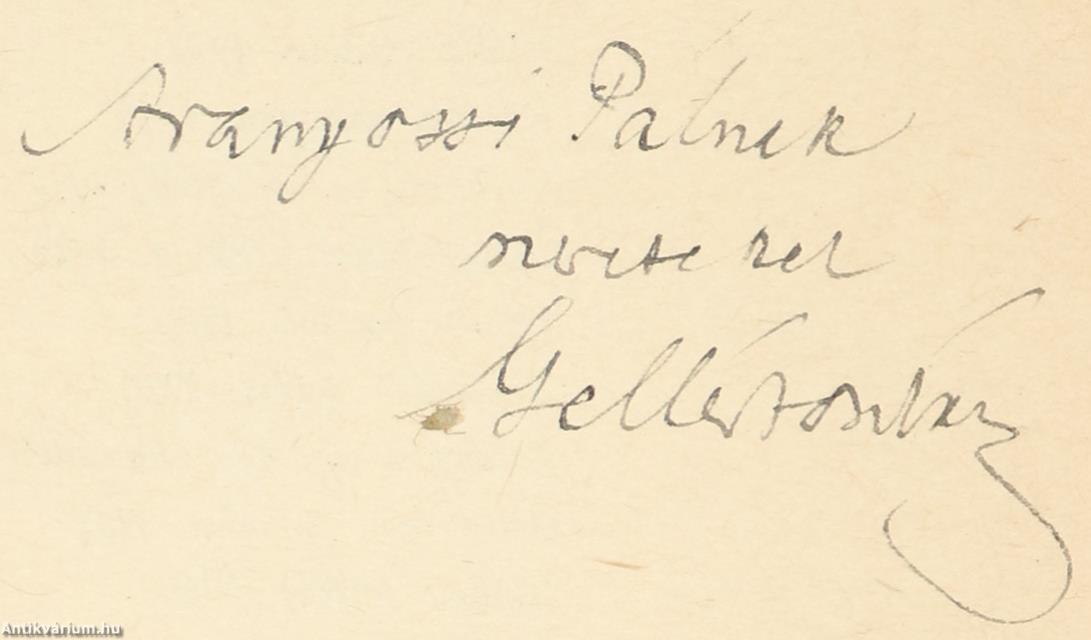 Aranyossi Pálnak
szeretettel
Gellért Oszkár
Antikvárium.hu